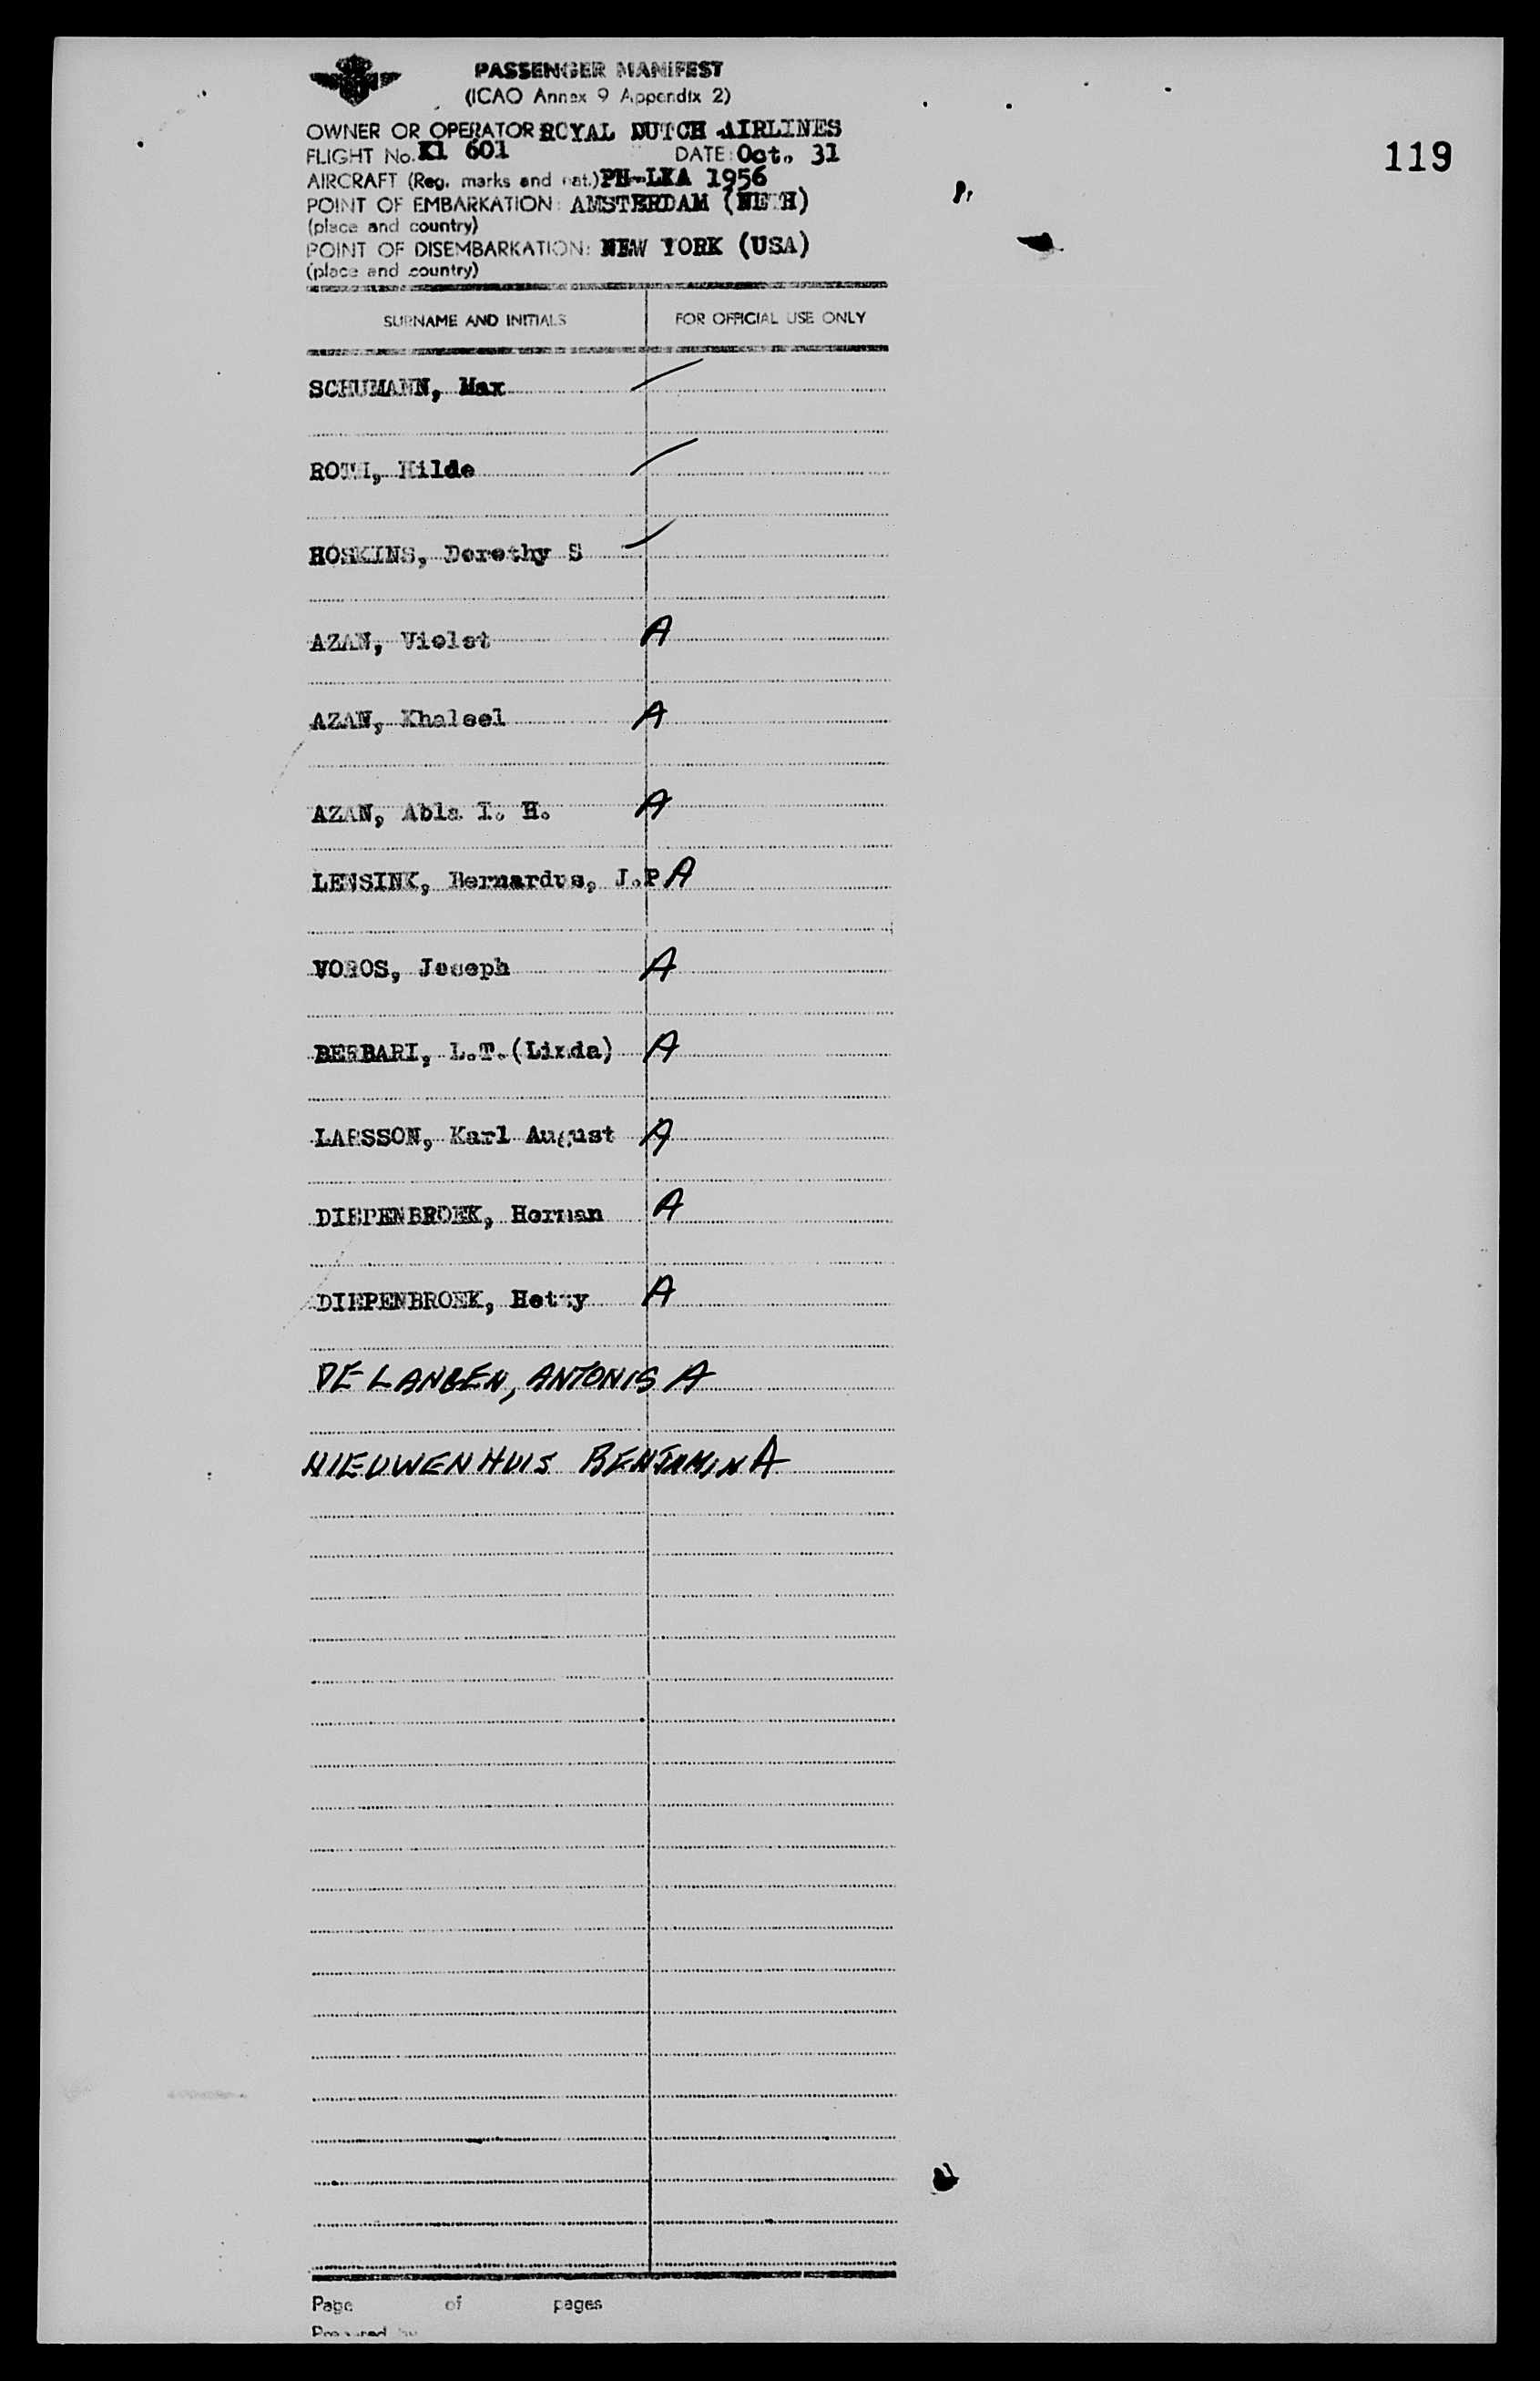 119
PASSENGER MANIFEST
(ICAO Annex 9 Appendix 2)
OWNER OR OPERATOR ROYAL DUTCH AIRLINES
FLIGHT No. Kl 601 DATE: Oct. 31
AIRCRAFT (Reg. marks and nat.) PH-LKA 1956
POINT OF EMBARKATION: AMSTERDAM (NETH)
(place and country)
POINT OF DISEMBARKATION: NEW YORK (USA)
(place and country)
SURNAME AND INITIALS FOR OFFICIAL USE ONLY
SCHUMANN, Max
ROTH, Hilde
HOSKINS, Dorothy S
AZAN, Violet A
AZAN, Khaleel A
AZAN, Abla I. H. A
LENSINK, Bernardus, J.P A
VOROS, Joseph A
BERBARI, L.T.(Linda) A
LARSSON, Karl August A
DIEPENBROEK, Herman A
DIEPENBROEK, Hetty A
DE LANGEN, ANTONIS A
NIEUWENHUIS BENJAMIN A
Page of pages
Prepared by